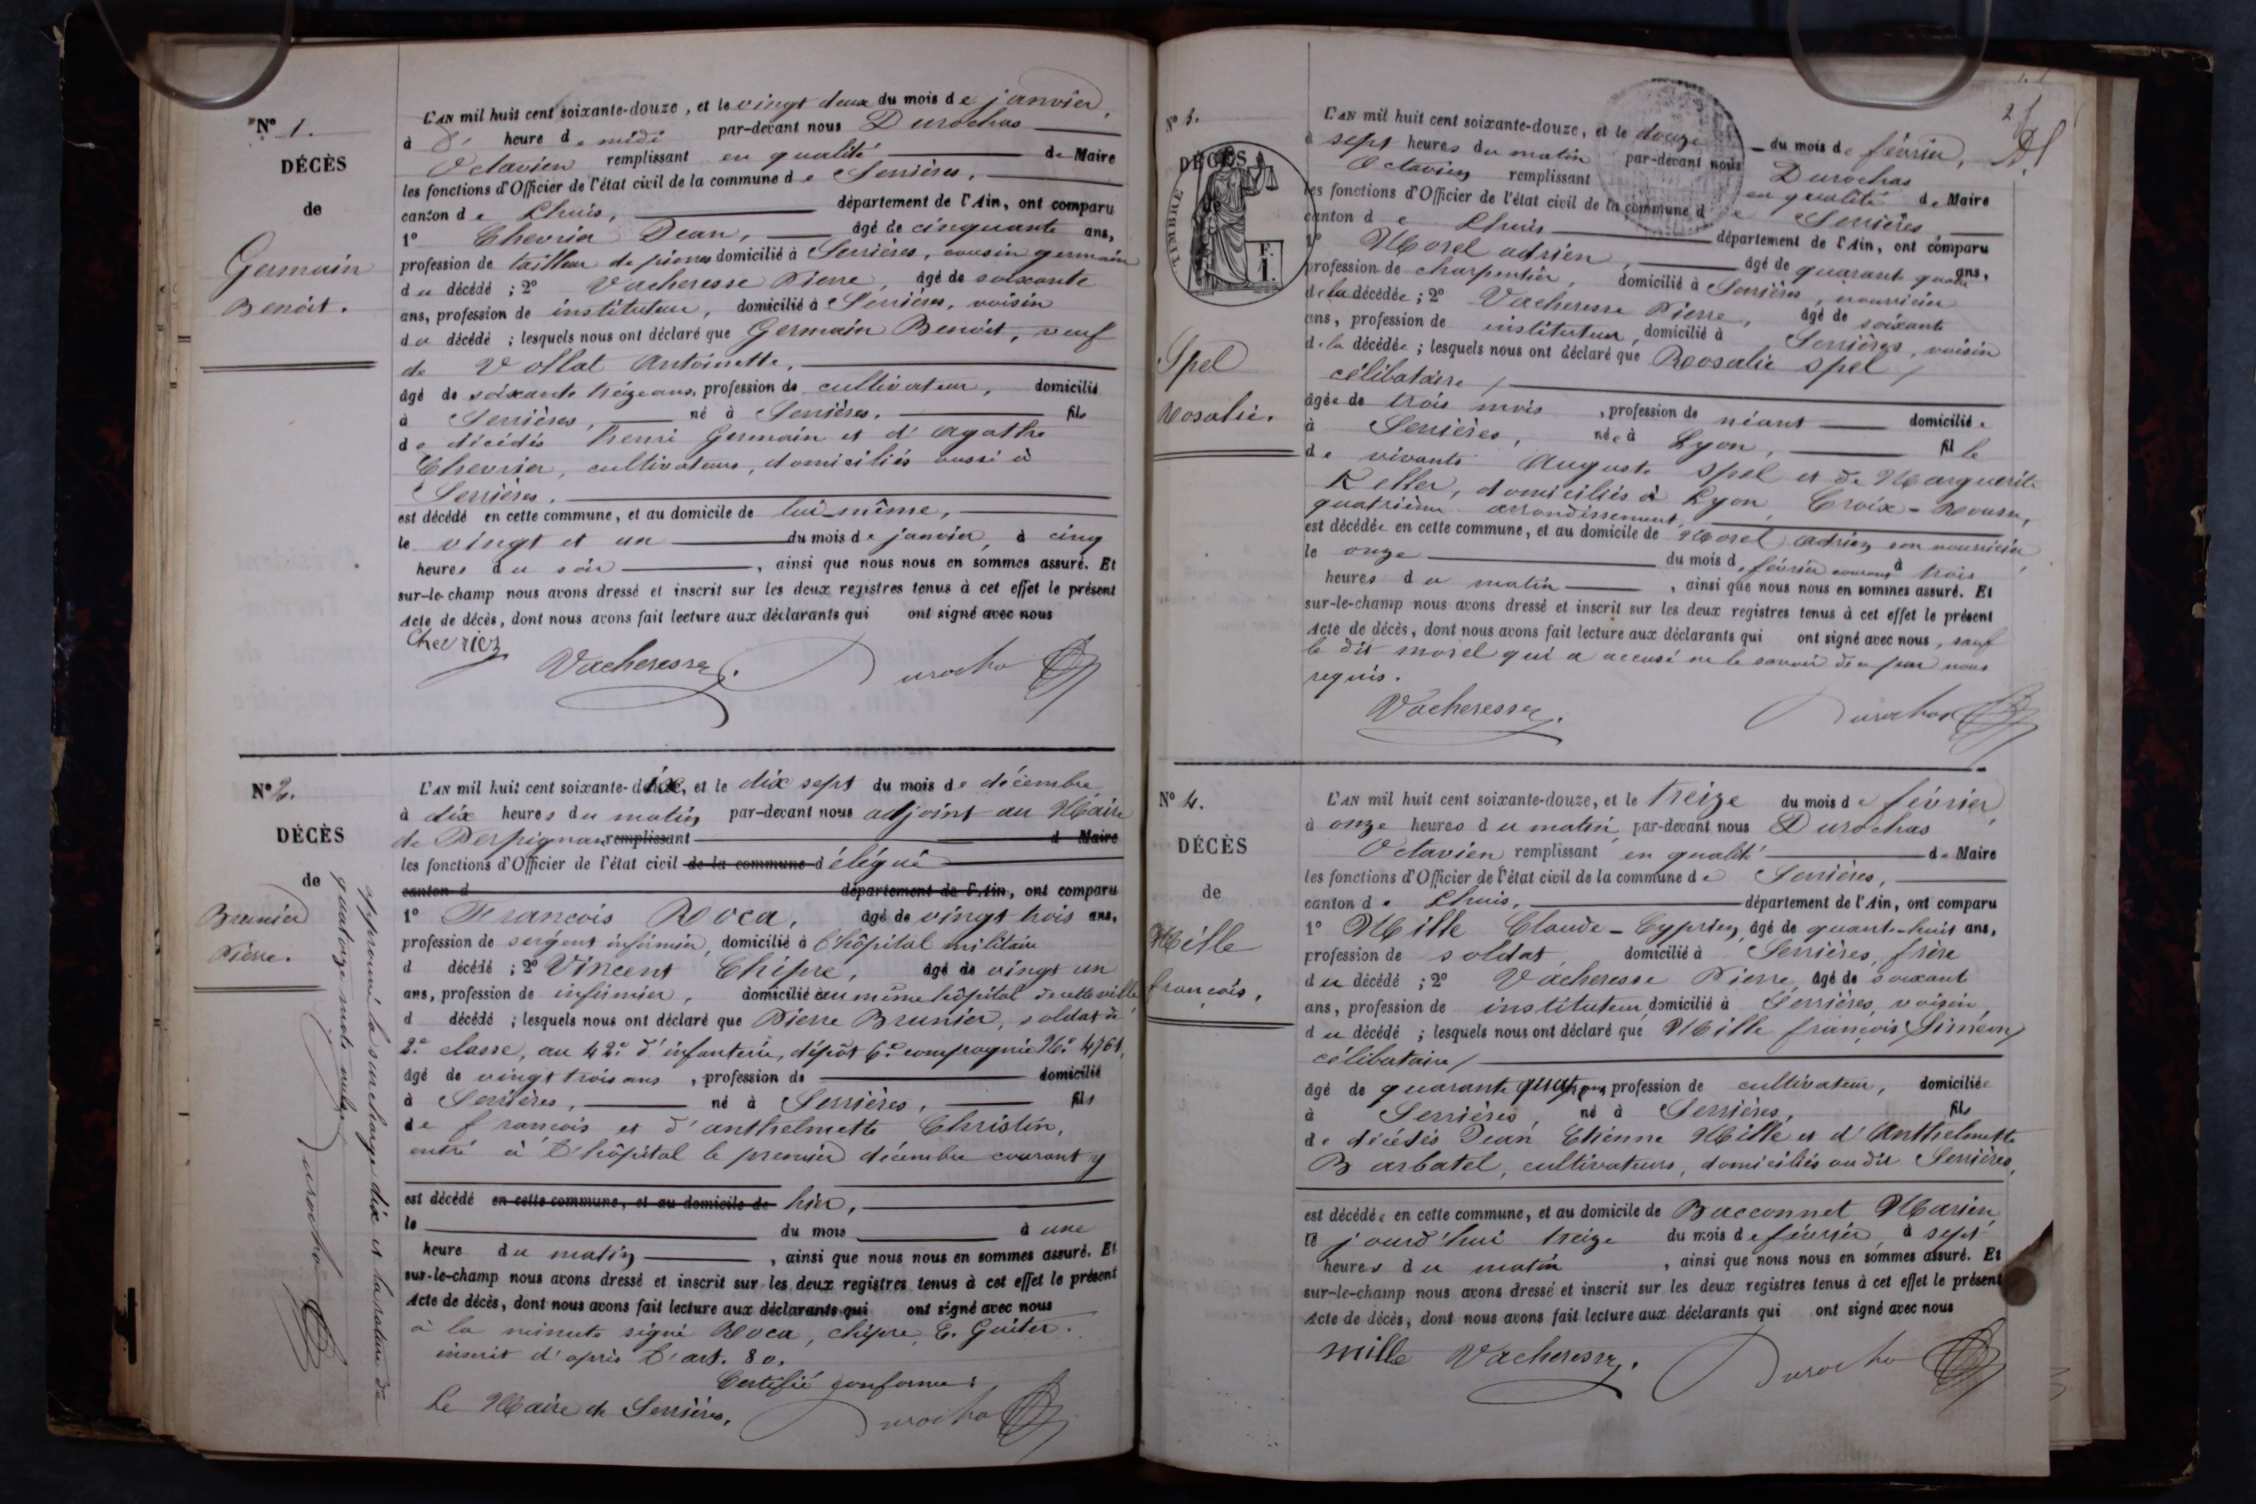 N° 1.
DÉCÈS
de
Germain
Benoit.
L'AN mil huit cent soixante-douze, et le vingt deux du mois de janvier,
à heure de midi par-devant nous Durochas
Octavien remplissant en qualité de Maire
les fonctions d'Officier de l'état civil de la commune de Serrières,
canton de Lhuis, département de l'Ain, ont comparu
1° Chevrier Jean, âgé de cinquante ans,
profession de tailleur de pierres domicilié à Serrières, cousin germain
du décédé ; 2° Vacheresse Pierre, âgé de soixante
ans, profession de instituteur, domicilié à Serrières, voisin
du décédé ; lesquels nous ont déclaré que Germain Benoit, veuf
de Vollat Antoinette,
âgé de soixante treize ans, profession de cultivateur, domicilié
à Serrières, né à Serrières, fils
de décédés henri Germain et d'Agathe
Chevrier, cultivateurs, domiciliés aussi à
Serrières.
est décédé en cette commune, et au domicile de lui-même,
le vingt et un du mois de janvier, à cinq
heures du soir, ainsi que nous nous en sommes assuré. Et
sur-le-champ nous avons dressé et inscrit sur les deux registres tenus à cet effet le présent
Acte de décès, dont nous avons fait lecture aux déclarants qui ont signé avec nous
Chevrier Vacheresse. Durochas
N° 2.
DÉCÈS
de
Brunier
Pierre.
approuvé la surcharge dix et la rature de
quatorze mots nuls
Durochas
L'AN mil huit cent soixante-dix, et le dix sept du mois de décembre
à dix heures du matin par-devant nous adjoint au Maire
de Perpignan remplissant d Maire
les fonctions d'Officier de l'état civil de la commune délégué
canton d département de l'Ain, ont comparu
1° Francois Roca, âgé de vingt trois ans,
profession de sergent infirmier, domicilié à l'hôpital militaire
d décédé ; 2° Vincent Chipre, âgé de vingt un
ans, profession de infirmier, domicilié au même hôpital de cette ville
d décédé ; lesquels nous ont déclaré que Pierre Brunier, soldat à
2e classe, au 42e d'infanterie, dépôt 6e compagnie No 4761,
âgé de vingt trois ans, profession de domicilié
à Serrières, né à Serrières, fils
de francois et d'anthelmette Christin,
entré à l'hôpital le premier décembre courant y
est décédé en cette commune, et au domicile de hier,
le du mois à une
heure du matin, ainsi que nous nous en sommes assuré. Et
sur-le-champ nous avons dressé et inscrit sur les deux registres tenus à cet effet le présent
Acte de décès, dont nous avons fait lecture aux déclarants qui ont signé avec nous
à la minute signé Roca, chipre, E. Guiter.
inscrit d'après l'art. 80.
Certifié conforme :
Le Maire de Serrières, Durochas
N° 3.
DÉCÈS
TIMBRE
F.
1.
Spel
Rosalie.
L'AN mil huit cent soixante-douze, et le douze du mois de février,
à sept heures du matin par-devant nous Durochas
Octavien remplissant en qualité de Maire
les fonctions d'Officier de l'état civil de la commune de Serrières
canton de Lhuis département de l'Ain, ont comparu
1° Morel adrien, âgé de quarant quatre ans,
profession de charpentier, domicilié à Serrières, nourricier
de la décédée ; 2° Vacheresse Pierre, âgé de soixante
ans, profession de instituteur, domicilié à Serrières, voisin
de la décédée ; lesquels nous ont déclaré que Rosalie Spel,
célibataire,
âgée de trois mois, profession de néant domiciliée
à Serrières, née à Lyon, fille
de vivants Auguste Spel et de Marguerite
Keller, domiciliés à Lyon, Croix-Rousse,
quatrième arrondissement,
est décédée en cette commune, et au domicile de Morel Adrien son nourricier,
le onze du mois de février courant à trois
heures du matin, ainsi que nous nous en sommes assuré. Et
sur-le-champ nous avons dressé et inscrit sur les deux registres tenus à cet effet le présent
Acte de décès, dont nous avons fait lecture aux déclarants qui ont signé avec nous, sauf
le dit morel qui a accusé ne le savoir de ce par nous
requis.
Vacheresse. Durochas
N° 4.
DÉCÈS
de
Mille
françois,
L'AN mil huit cent soixante-douze, et le treize du mois de février,
à onze heures du matin, par-devant nous Durochas
Octavien remplissant en qualité de Maire
les fonctions d'Officier de l'état civil de la commune de Serrières,
canton de Lhuis, département de l'Ain, ont comparu
1° Mille Claude-Cyprien, âgé de quarante-huit ans,
profession de soldat, domicilié à Serrières, frère
du décédé ; 2° Vacheresse Pierre, âgé de soixant
ans, profession de instituteur, domicilié à Serrières, voisin,
du décédé ; lesquels nous ont déclaré que Mille françois Siméon,
célibataire,
âgé de quarante quatre ans, profession de cultivateur, domiciliée
à Serrières, né à Serrières, fils
de décédés Jean Etienne Mille et d'Anthelmette
Barbatel, cultivateurs, domiciliés audit Serrières,
est décédée en cette commune, et au domicile de Bacconnet Marien,
le jourd'hui treize du mois de février, à sept
heures du matin, ainsi que nous nous en sommes assuré. Et
sur-le-champ nous avons dressé et inscrit sur les deux registres tenus à cet effet le présent
Acte de décès, dont nous avons fait lecture aux déclarants qui ont signé avec nous
mille Vacheresse. Durochas